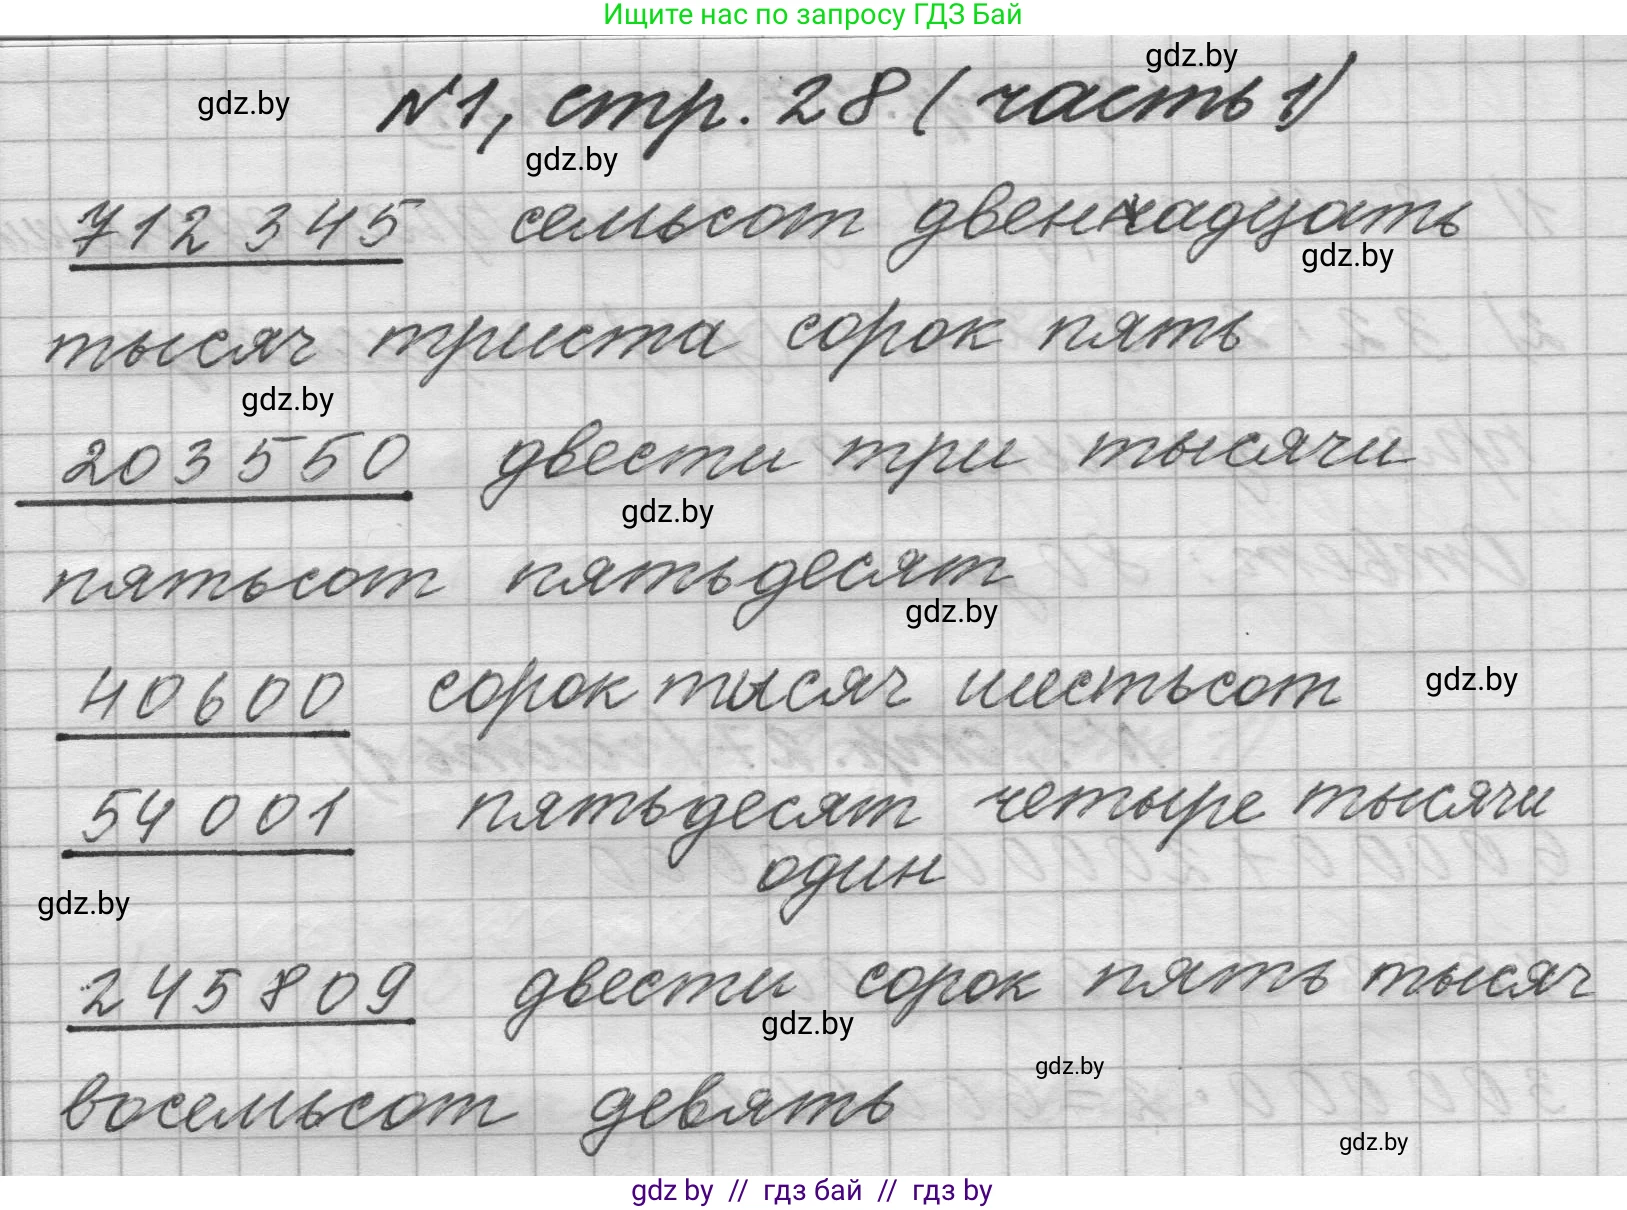 Ищите нас по запросу ГДЗ Бай
gdz.by
gdz.by №1, стр. 28 (часть 1)
gdz.by
712 345 семьсот двенадцать
gdz.by
тысяч триста сорок пять
gdz.by
203 550 двести три тысячи
gdz.by
пятьсот пятьдесят
gdz.by
40600 сорок тысяч шестьсот gdz.by
54 001 пятьдесят четыре тысячи
один
gdz.by
245 809 двести сорок пять тысяч
gdz.by
gdz.by
восемьсот девять
gdz.by
gdz by // гдз бай // гдз by